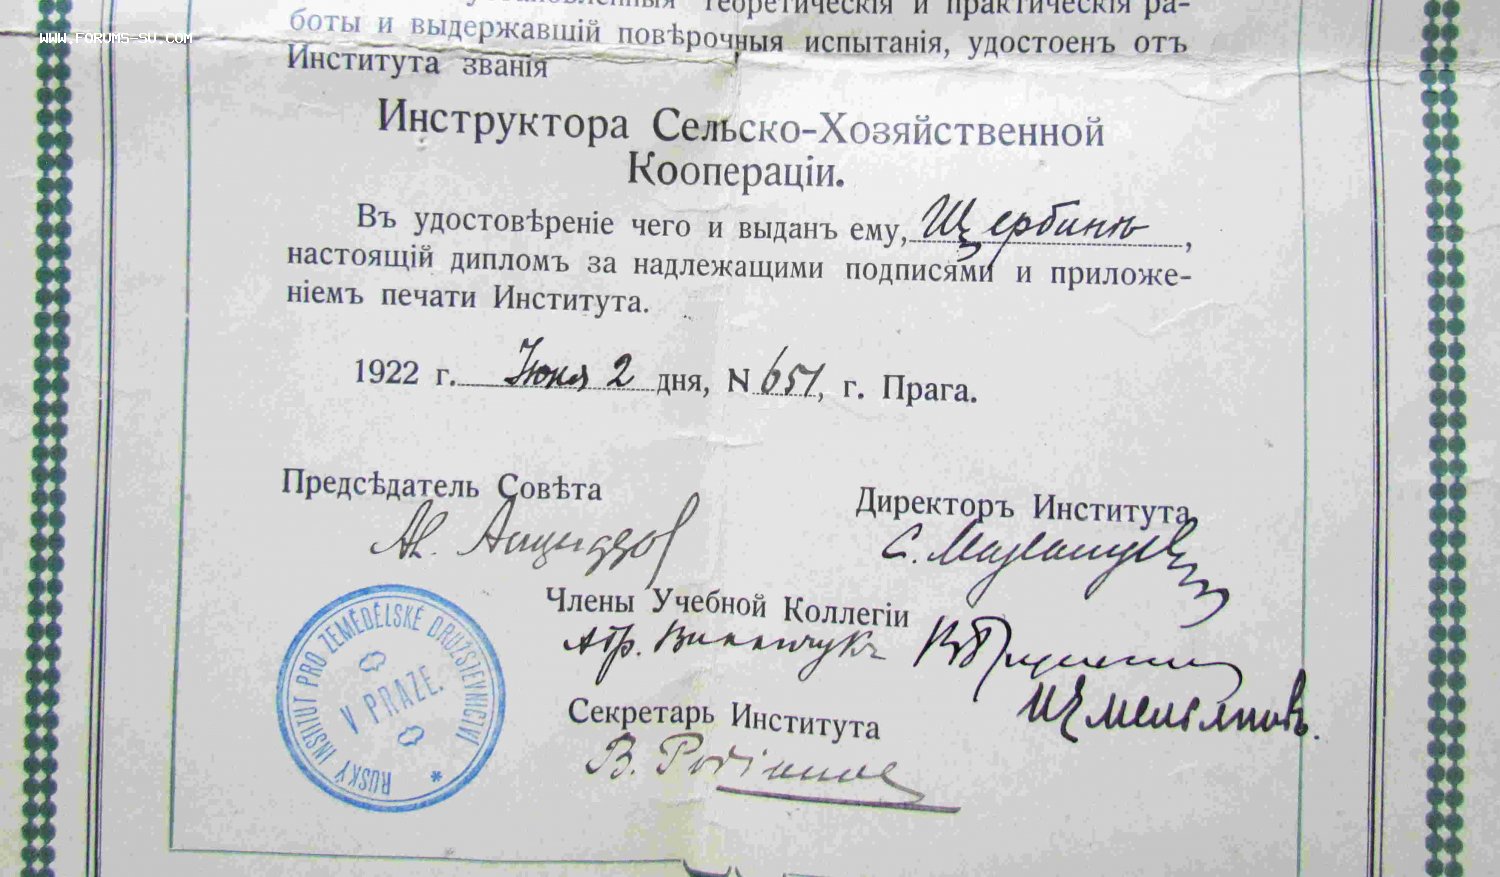 WWW.FORUMS-SU.COM
теоретическія и практическія ра-
боты и выдержавшій повѣрочныя испытанія, удостоенъ отъ
Института званія
Инструктора Сельско-Хозяйственной
Кооперацiи.
Въ удостовѣреніе чего и выданъ ему, Щербинъ,
настоящій дипломъ за надлежащими подписями и приложе-
ніемъ печати Института.
1922 г. Іюня 2 дня, N 651, г. Прага.
Предсѣдатель Совѣта
Директоръ Института
Члены Учебной Коллегіи
Секретарь Института
RUSKÝ INSTITUT PRO ZEMĚDĚLSKÉ DRUŽSTEVNICTVÍ
V PRAZE.
*